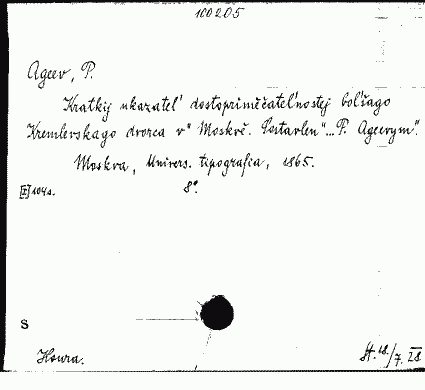 100205
Ageev, P.
Kratkij ukazatel' dostopriměčatel'nostej bol'šago
Kremlevskago dvorca v" Moskvě. Sostavlen"... P. Ageevym".
Moskva, Univers. tipografia, 1865.
8°.
S
Houra.